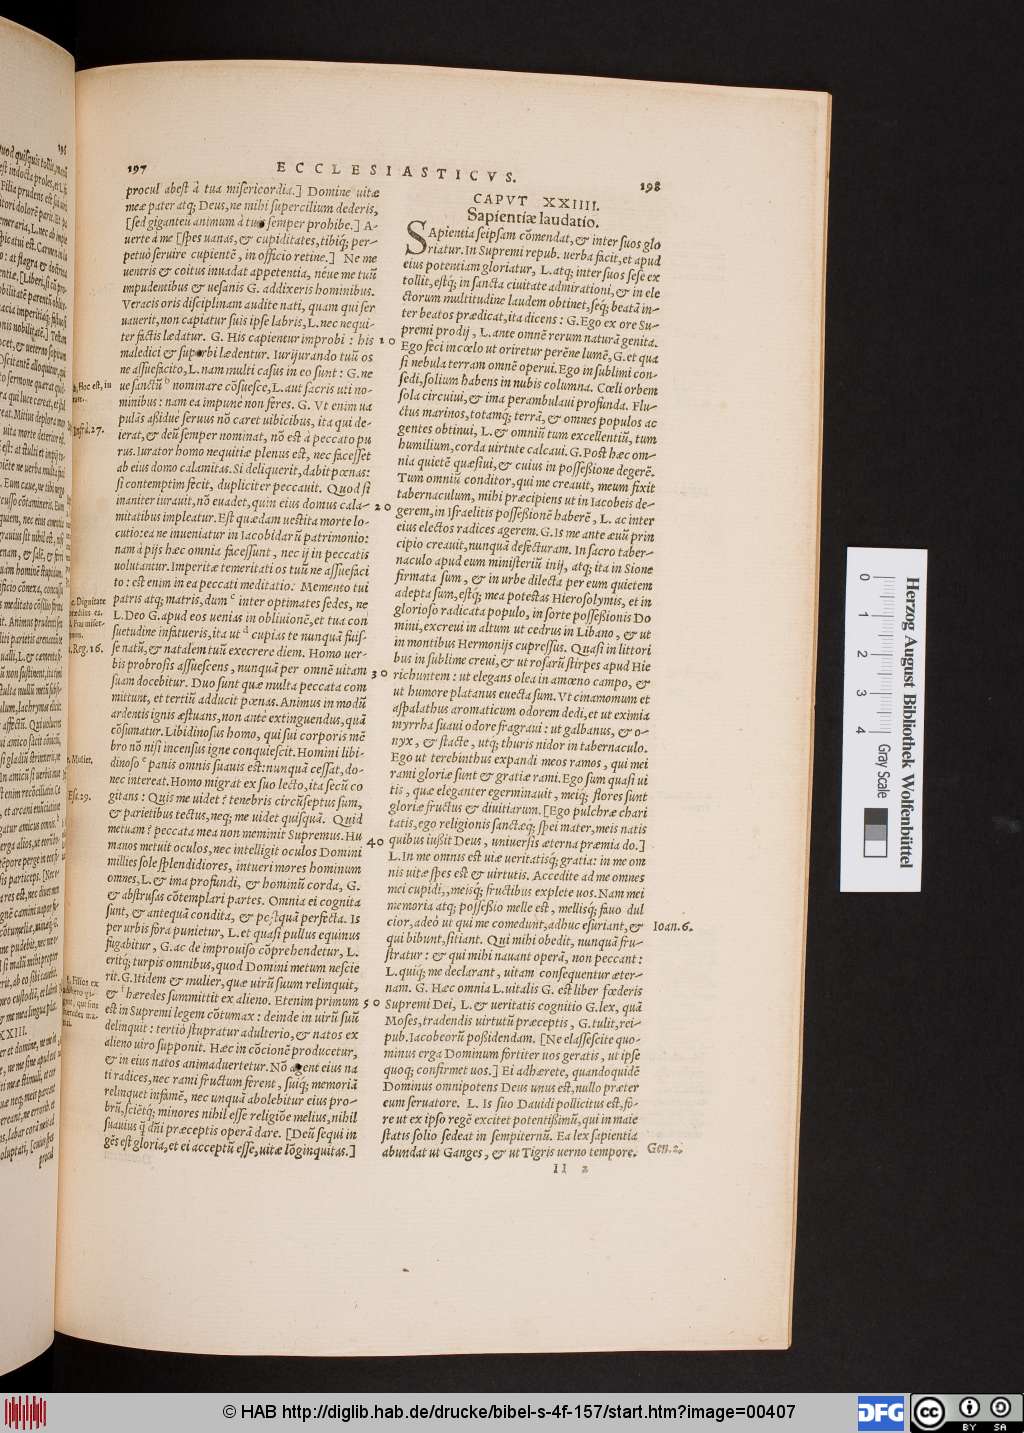 197
ECCLESIASTICVS.
198
procul abest à tua misericordia.] Domine uitæ
meæ pater atq; Deus, ne mihi supercilium dederis,
[sed giganteũ animum à tuo semper prohibe.] A-
uerte à me [spes uanas, & cupiditates, tibiq́; per-
petuò seruire cupientẽ, in officio retine.] Ne me
uentris & coitus inuadat appetentia, néue me tuũ
impudentibus & uesanis G. addixeris hominibus.
Veracis oris disciplinam audite nati, quam qui ser
uauerit, non capiatur suis ipse labris, L. nec nequi-
ter factis lædatur. G. His capientur improbi: his
maledici & superbi lædentur. Iurijurando tuũ os
ne assuefacito, L. nam multi casus in eo sunt: G. ne
ue sanctũ b nominare cõsuesce, L. aut sacris uti no-
minibus: nam ea impune non feres. G. Vt enim ua
pulãs aßiduè seruus nõ caret uibicibus, ita qui de-
ierat, & deũ semper nominat, nõ est à peccato pu
rus. Iurator homo nequitiæ plenus est, nec facesset
ab eius domo calamitas. Si deliquerit, dabit pœnas:
si contemptim fecit, dupliciter peccauit. Quod si
inaniter iurauit, nõ euadet, quin eius domus cala-
mitatibus impleatur. Est quædam uestita morte lo-
cutio: ea ne inueniatur in Iacobidarũ patrimonio:
nam à pijs hæc omnia facessunt, nec ij in peccatis
uolutantur. Imperitæ temeritati os tuũ ne assuefaci
to: est enim in ea peccati meditatio. Memento tui
patris atq; matris, dum c inter optimates sedes, ne
L. Deo G. apud eos uenias in obliuionẽ, et tua con
suetudine infatueris, ita ut d cupias te nunquã fuis-
se natũ, & natalem tuũ execrere diem. Homo uer-
bis probrosis assuescens, nunquã per omnẽ uitam
suam docebitur. Duo sunt quæ multa peccata com
mittunt, et tertiũ adducit pœnas. Animus in modũ
ardentis ignis æstuans, non antè extinguendus, quã
cõsumatur. Libidinosus homo, qui sui corporis mẽ
bro nõ nisi incensus igne conquiescit. Homini libi-
dinoso e panis omnis suauis est: nunquã cessat, do-
nec intereat. Homo migrat ex suo lecto, ita secũ co
gitans: Quis me uidet? tenebris circũseptus sum,
& parietibus tectus, neq; me uidet quisquã. Quid
metuam? peccata mea non meminit Supremus. Hu
manos metuit oculos, nec intelligit oculos Domini
millies sole splendidiores, intueri mores hominum
omnes. L. & ima profundi, & hominũ corda, G.
& abstrusas cõtemplari partes. Omnia ei cognita
sunt, & antequã condita, & postquã perfecta. Is
per urbis fora punietur, L. et quasi pullus equinus
fugabitur, G. ac de improuiso cõprehendetur, L.
eritq; turpis omnibus, quod Domini metum nescie
rit. G. Itidem & mulier, quæ uirũ suum relinquit,
& f hæredes summittit ex alieno. Etenim primum
est in Supremi legem cõtumax: deinde in uirũ suũ
delinquit: tertiò stupratur adulterio, & natos ex
alieno uiro supponit. Hæc in cõcionẽ producetur,
& in eius natos animaduertetur. Nõ agent eius na
ti radices, nec rami fructum ferent, suiq́; memoriã
relinquet infamẽ, nec unquã abolebitur eius pro-
brũ, sciẽtq́; minores nihil esse religiõe melius, nihil
suauius q̃ dñi præceptis operã dare. [Deũ sequi in
gẽs est gloria, et ei acceptũ esse, uitæ lõginquitas.]
b, Hoc est, iu
ram.
Infrà 27.
c, Dignitate
præditus es.
3. Reg. 16.
e, Mulier.
Esa. 29.
f, Filios ex
10
20
30
40
50
CAPVT XXIIII.
Sapientiæ laudatio.
SApientia seipsam cõmendat, & inter suos glo
riatur. In Supremi repub. uerba facit, et apud
eius potentiam gloriatur, L. atq; inter suos sese ex
tollit, estq́; in sancta ciuitate admirationi, & in ele
ctorum multitudine laudem obtinet, seq́; beatã in-
ter beatos prædicat, ita dicens: G. Ego ex ore Su-
premi prodij, L. ante omnẽ rerum naturã genita.
Ego feci in cœlo ut oriretur perẽne lumẽ, G. et qua
si nebula terram omnẽ operui. Ego in sublimi con-
sedi, solium habens in nubis columna. Cœli orbem
sola circuiui, & ima perambulaui profunda. Flu-
ctus marinos, totamq́; terrã, & omnes populos ac
gentes obtinui, L. & omniũ tum excellentiũ, tum
humilium, corda uirtute calcaui. G. Post hæc om-
nia quietẽ quæsiui, & cuius in possessione degerẽ.
Tum omniũ conditor, qui me creauit, meum fixit
tabernaculum, mihi præcipiens ut in Iacobeis de-
gerem, in Israelitis possessionẽ haberẽ, L. ac inter
eius electos radices agerem. G. Is me ante æuũ prin
cipio creauit, nunquã defecturam. In sacro taber-
naculo apud eum ministeriũ inij, atq; ita in Sione
firmata sum, & in urbe dilecta per eum quietem
adepta sum, estq́; mea potestas Hierosolymis, et in
glorioso radicata populo, in sorte possessionis Do
mini, excreui in altum ut cedrus in Libano, & ut
in montibus Hermonijs cupressus. Quasi in littori
bus in sublime creui, & ut rosarũ stirpes apud Hie
richuntem: ut elegans olea in amœno campo, &
ut humore platanus euecta sum. Vt cinamomum et
aspalathus aromaticum odorem dedi, et ut eximia
myrrha suaui odore fragraui: ut galbanus, & o-
nyx, & stacte, utq; thuris nidor in tabernaculo.
Ego ut terebinthus expandi meos ramos, qui mei
rami gloriæ sunt & gratiæ rami. Ego sum quasi ui
tis, quæ eleganter egerminauit, meiq́; flores sunt
gloriæ fructus & diuitiarum. [Ego pulchræ chari
tatis, ego religionis sanctæq́; spei mater, meis natis
quibus iußit Deus, uniuersis æterna præmia do.]
L. In me omnis est uiæ ueritatisq́; gratia: in me om
nis uitæ spes est & uirtutis. Accedite ad me omnes
mei cupidi,, meisq́; fructibus explete uos. Nam mei
memoria atq; possessio melle est, mellisq́; fauo dul
cior, adeò ut qui me comedunt, adhuc esuriant, &
qui bibunt, sitiant. Qui mihi obedit, nunquã fru-
stratur: & qui mihi nauant operã, non peccant:
L. quiq́; me declarant, uitam consequentur æter-
nam. G. Hæc omnia L. uitalis G. est liber fœderis
Supremi Dei, L. & ueritatis cognitio G. lex, quã
Moses, tradendis uirtutũ præceptis, G. tulit, rei-
pub. Iacobeorũ poßidendam. [Ne elassescite quo-
minus erga Dominum fortiter uos geratis, ut ipse
quoq; confirmet uos.] Ei adhærete, quandoquidẽ
Dominus omnipotens Deus unus est, nullo præter
eum seruatore. L. Is suo Dauidi pollicitus est, fo-
re ut ex ipso regẽ excitet potentißimũ, qui in maie
statis solio sedeat in sempiternũ. Ea lex sapientia
abundat ut Ganges, & ut Tigris uerno tempore.
Ioan. 6.
Gen. 2.
II 2
Herzog August Bibliothek Wolfenbüttel
0 1 2 3 4
Gray Scale
© HAB http://diglib.hab.de/drucke/bibel-s-4f-157/start.htm?image=00407
DFG
cc BY SA